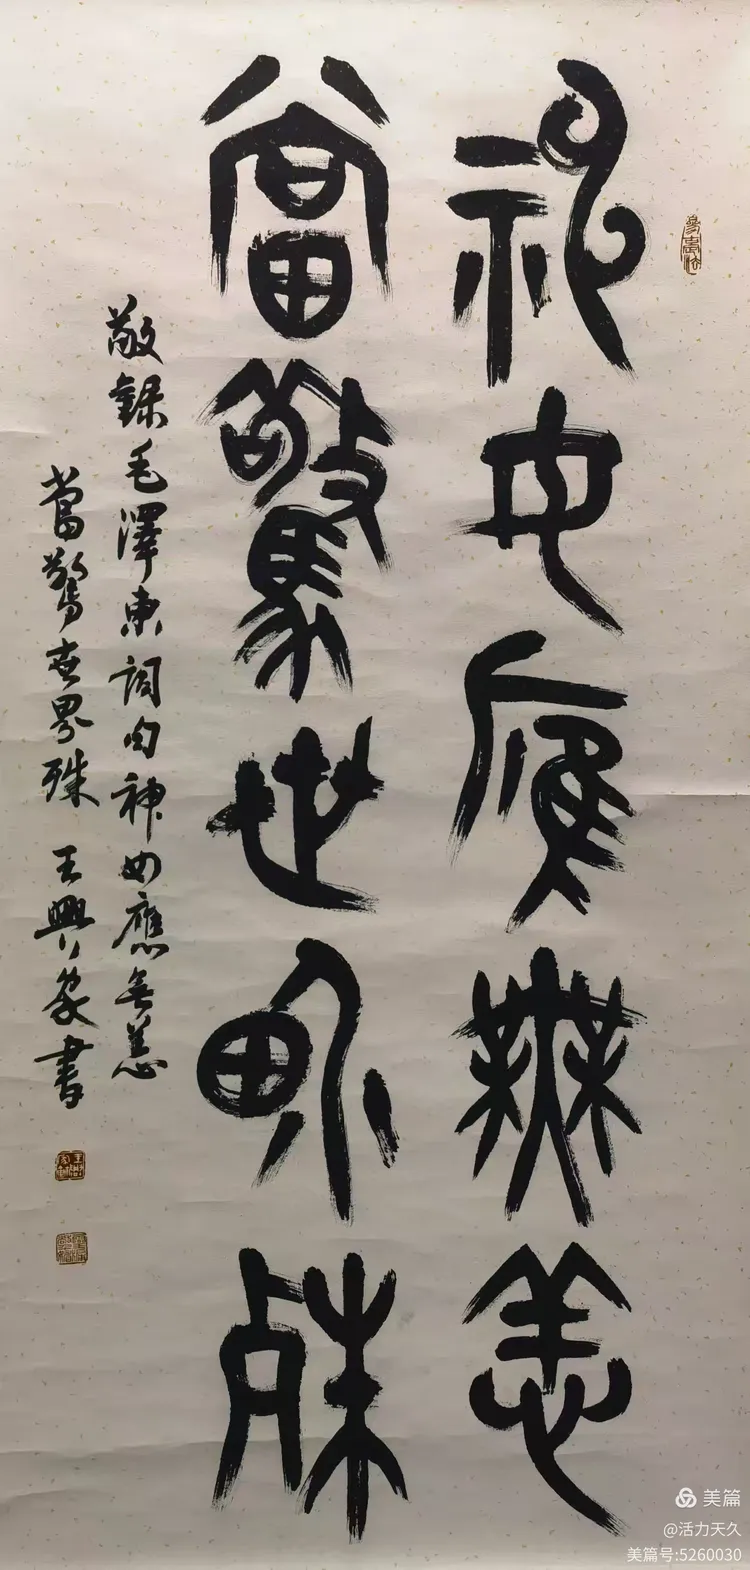 神女應無恙
當驚世界殊
敬錄毛澤東詞句神女應無恙
當驚世界殊 王興家書
美篇
@活力天久
美篇号:5260030